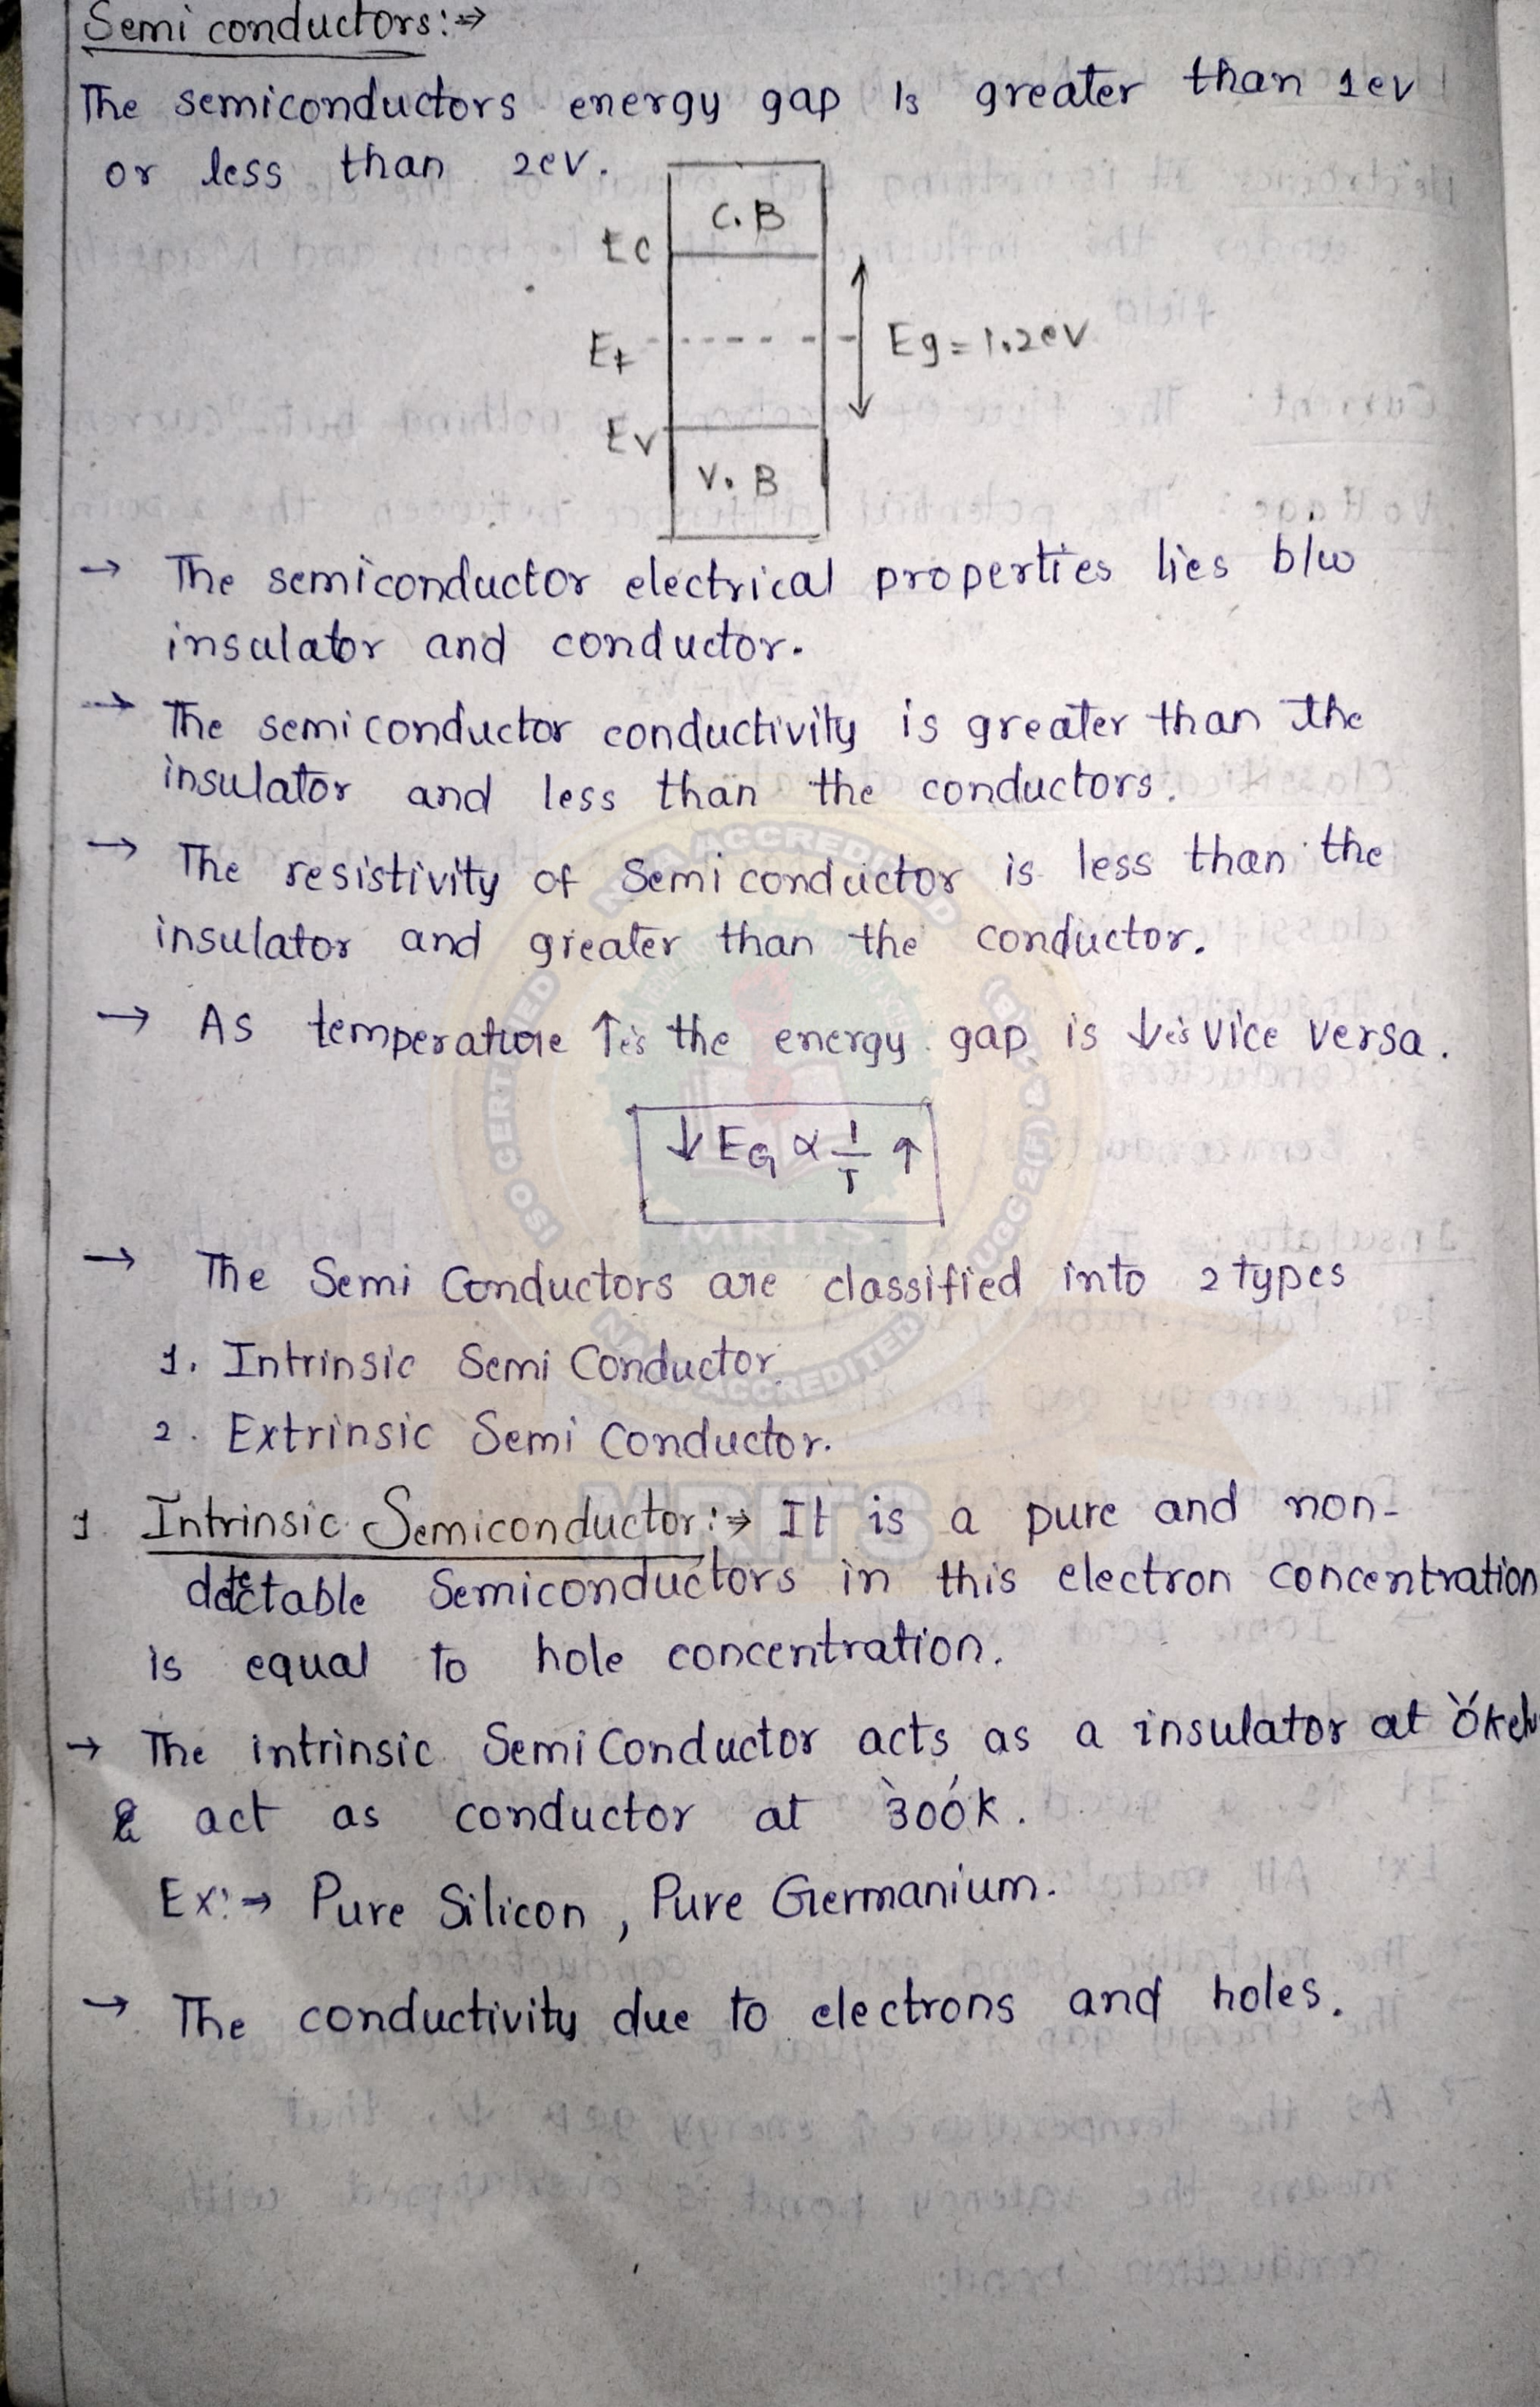 Semi conductors:⇒
The semiconductors energy gap Is greater than 1ev
or less than 2ev.
C.B
Ec
Ef
Eg = 1.2eV
Ev
V.B
→ The semiconductor electrical properties lies b/w
insulator and conductor.
→ The semi conductor conductivity is greater than the
insulator and less than the conductors.
→ The resistivity of Semi conductor is less than the
insulator and greater than the conductor.
→ As temperature ↑es the energy gap is ↓es vice versa.
↓ EG ∝ 1/T ↑
→ The Semi Conductors are classified into 2 types
1. Intrinsic Semi Conductor.
2. Extrinsic Semi Conductor.
1. Intrinsic Semiconductor:⇒ It is a pure and non-
detectable Semiconductors in this electron concentration
is equal to hole concentration.
→ The intrinsic Semi Conductor acts as a insulator at 0
& act as conductor at 300k.
Ex:⇒ Pure Silicon, Pure Germanium.
→ The conductivity due to electrons and holes.
NBA ACCREDITED
ISO CERTIFIED
UGC 2(f) & 12(B)
MRITS
ACCREDITED
MRITS